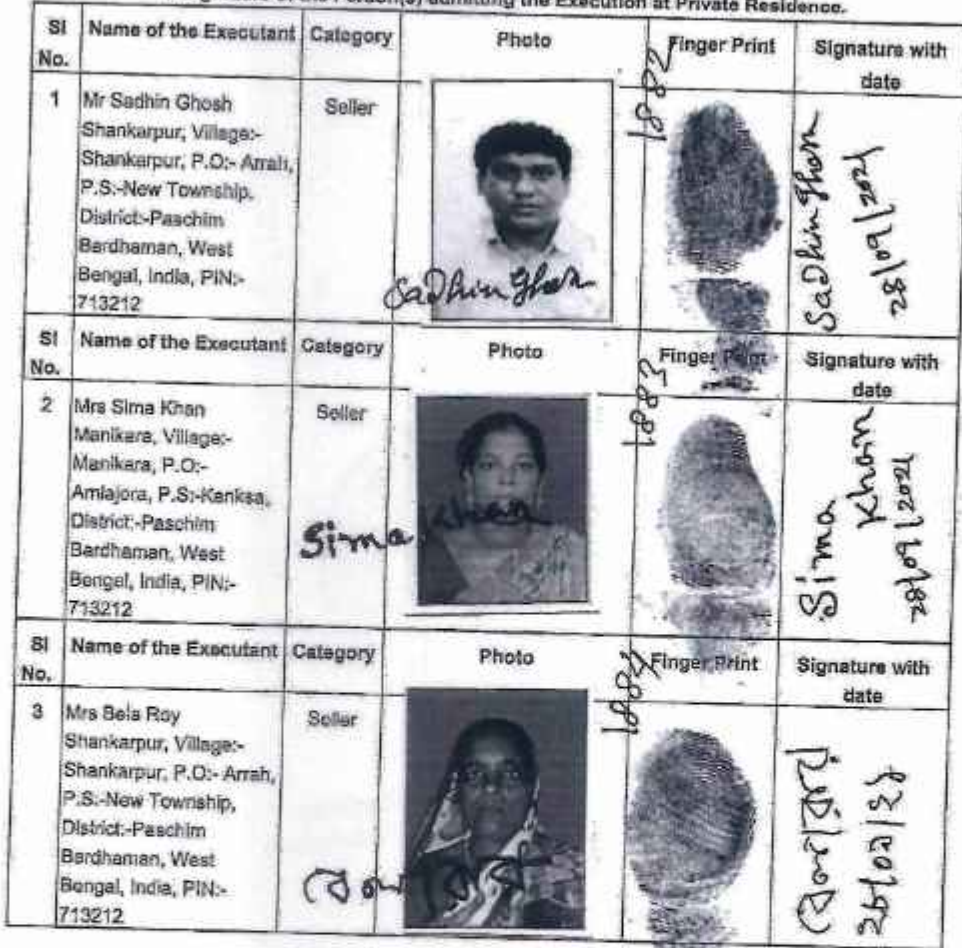 Signature of the Person(s) admitting the Execution at Private Residence.
Sl No. Name of the Executant Category Photo Finger Print Signature with date
1 Mr Sadhin Ghosh Seller
Shankarpur, Village:-
Shankarpur, P.O:- Arrah,
P.S:-New Township,
District:-Paschim
Bardhaman, West
Bengal, India, PIN:-
713212
SaDhin Ghosh
1882
SaDhin Ghosh
28/09/2021
Sl No. Name of the Executant Category Photo Finger Print Signature with date
2 Mrs Sima Khan Seller
Manikara, Village:-
Manikara, P.O:-
Amlajora, P.S:-Kanksa,
District:-Paschim
Bardhaman, West
Bengal, India, PIN:-
713212
Sima Khan
1883
Sima Khan
28/09/2021
Sl No. Name of the Executant Category Photo Finger Print Signature with date
3 Mrs Bela Roy Seller
Shankarpur, Village:-
Shankarpur, P.O:- Arrah,
P.S:-New Township,
District:-Paschim
Bardhaman, West
Bengal, India, PIN:-
713212
বেলা রায়
1884
বেলা রায়
২৮/০৯/২১